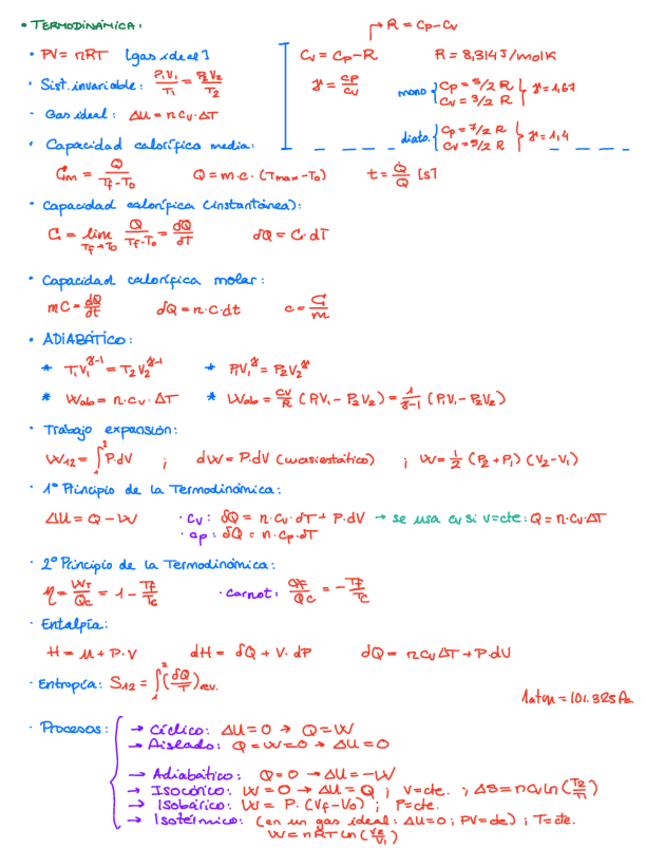 • TERMODINÁMICA:
R = Cp - Cv
• PV = nRT [gas ideal]
Cv = Cp - R
R = 8,314 J/mol K
• Sist. invariable: P₁V₁/T₁ = P₂V₂/T₂
γ = Cp/Cv
mono { Cp = 5/2 R Cv = 3/2 R } γ = 1,67
- Gas ideal: ΔU = n Cv · ΔT
diato. { Cp = 7/2 R Cv = 5/2 R } γ = 1,4
• Capacidad calorífica media:
Cm = Q/(Tf - To) Q = m · c · (Tmax - To) t = Q/Q̇ [s]
• Capacidad calorífica (instantánea):
C = lim Tf→To Q/(Tf - To) = dQ/dT δQ = C · dT
• Capacidad calorífica molar:
mC = dQ/dt δQ = n · C · dt c = C/m
• ADIABÁTICO:
* T₁V₁^γ-1 = T₂V₂^γ-1 * P₁V₁^γ = P₂V₂^γ
* Wab = n · cv · ΔT * Wab = cv/R (P₁V₁ - P₂V₂) = 1/(γ-1) (P₁V₁ - P₂V₂)
• Trabajo expansión:
W₁₂ = ∫₁² P · dV ; dW = P · dV (cuasiestático) ; W = 1/2 (P₂ + P₁) (V₂ - V₁)
• 1º Principio de la Termodinámica:
ΔU = Q - W · cv: δQ = n · cv · dT + P · dV → se usa cv si v = cte: Q = n · cv · ΔT
· cp: δQ = n · cp · dT
• 2º Principio de la Termodinámica:
η = WT/Qc = 1 - Tf/Tc · Carnot: Qf/Qc = - Tf/Tc
• Entalpía:
H = u + P · V dH = δQ + V · dP dQ = n cv ΔT + P · dV
· Entropía: S₁₂ = ∫₁² (δQ/T) rev.
1 atm = 101.325 Pa
• Procesos: → Cíclico: ΔU = 0 → Q = W
→ Aislado: Q = W = 0 → ΔU = 0
→ Adiabático: Q = 0 → ΔU = -W
→ Isocórico: W = 0 → ΔU = Q ; V = cte. ; ΔS = n cv ln (T₂/T₁)
→ Isobárico: W = P · (Vf - Vo) ; P = cte.
→ Isotérmico: (en un gas ideal: ΔU = 0 ; PV = cte) ; T = cte.
W = nRT ln (V₂/V₁)